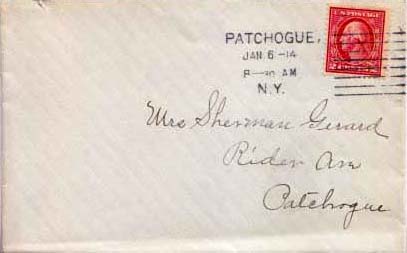 PATCHOGUE,
JAN 6 -14
8-30 AM
N.Y.
U.S. POSTAGE
Mrs Sherman Gerard
Rider Ave
Patchogue